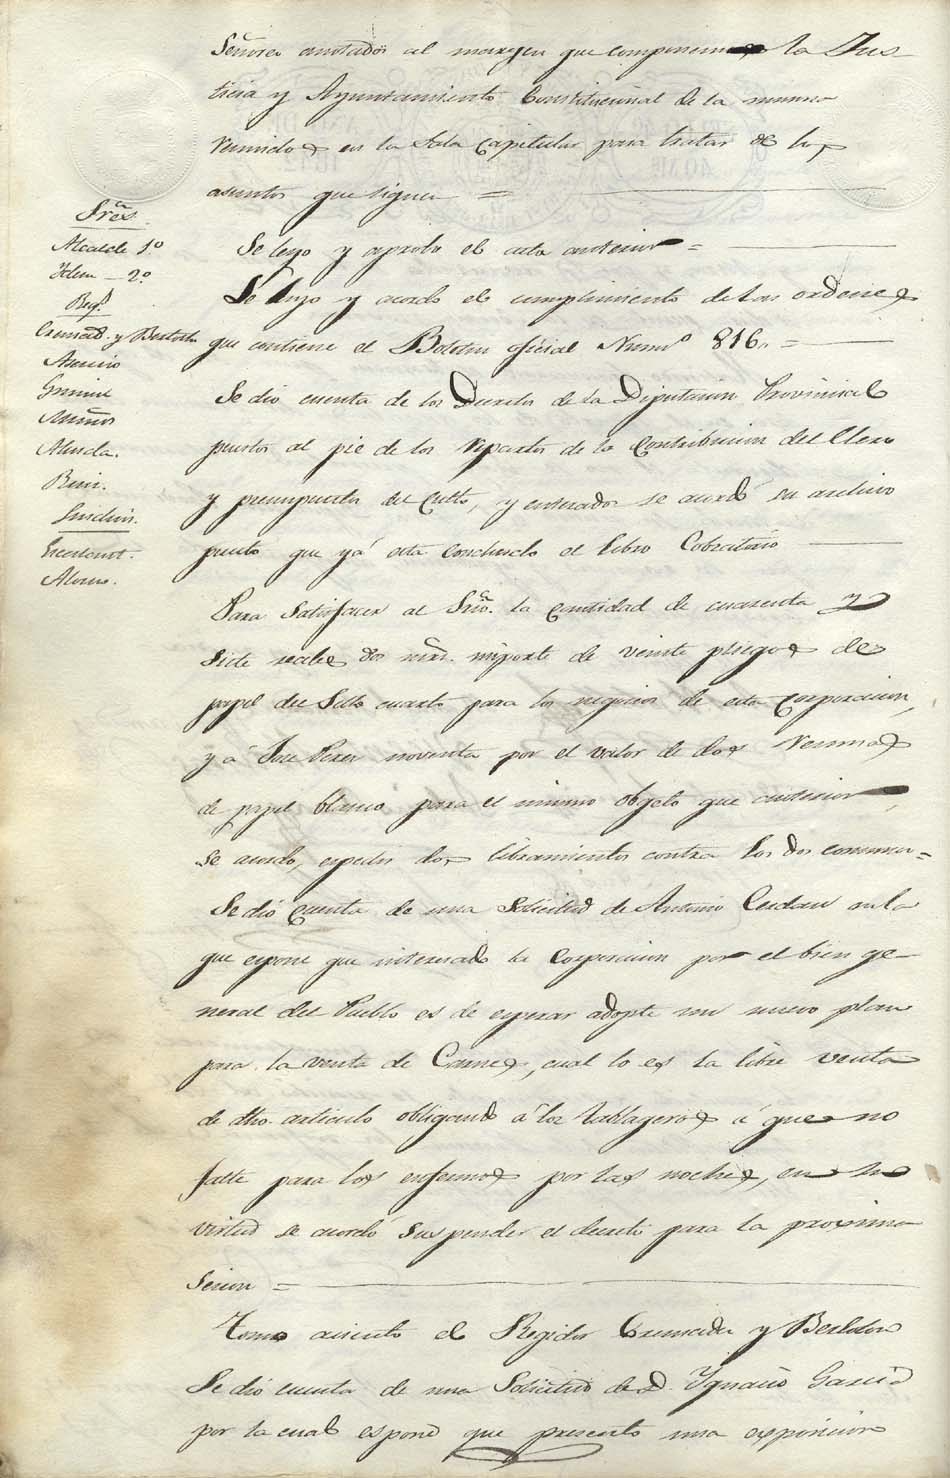 Señores anotados al margen que componen la Jus-
ticia y Ayuntamiento Constitucional de la misma
reunidos en la Sala Capitular para tratar de los
asuntos que siguen =
Sres.
Alcalde 1º
Ydem - 2º
Reg.s
y Bertolin
Asensio
Muñoz
Sindicos.
Alonso.
Se leyo y aprobo el acta anterior =
Se leyo y acordo el cumplimiento de las ordenes
que contiene el Boletin oficial Numº 816. =
Se dio cuenta de los Decretos de la Diputacion Provincial
puestos al pie de los repartos de la Contribucion del Clero
y presupuesto del Culto, y enterados se acordó su archivo
puesto que yá esta concluido el libro Cobratorio
Para satisfacer al Srio. la cantidad de cuarenta y
siete reales dos mrs. importe de veinte pliegos de
papel del Sello cuarto para los negocios de esta Corporacion,
y á Jose Perez noventa por el valor de dos resmas
de papel blanco para el mismo objeto que anterior,
se acordo, espedir dos libramientos contra los dos comunes =
Se dió cuenta de una Solicitud de Antonio Cerdan en la
que espone que interesado la Corporacion por el bien ge-
neral del Pueblo es de esperar adopte un nuevo plan
para la venta de Carnes, cual lo es la libre venta
de dho. articulo obligando á los tablageros á que no
falte para los enfermos por las noches, en su
virtud se acordó suspender el decreto para la proxima
Sesion =
Tomo asiento el Regidor y Bertolin
Se dió cuenta de una Solicitud de D. Ygnacio Garcia
por la cual espone que presento una exposicion